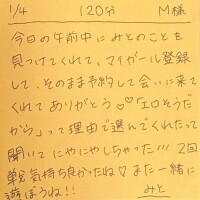 1/4 120分 M様
今日の午前中にみとのことを
見つけてくれて、マイガール登録
して、そのまま予約して会いに来て
くれてありがとう♡♡「エロそうだ
から」って理由で選んでくれたって
聞いてにやにやしちゃった!!! 2回
戦も気持ち良かったね♡また一緒に
遊ぼうね!! みと